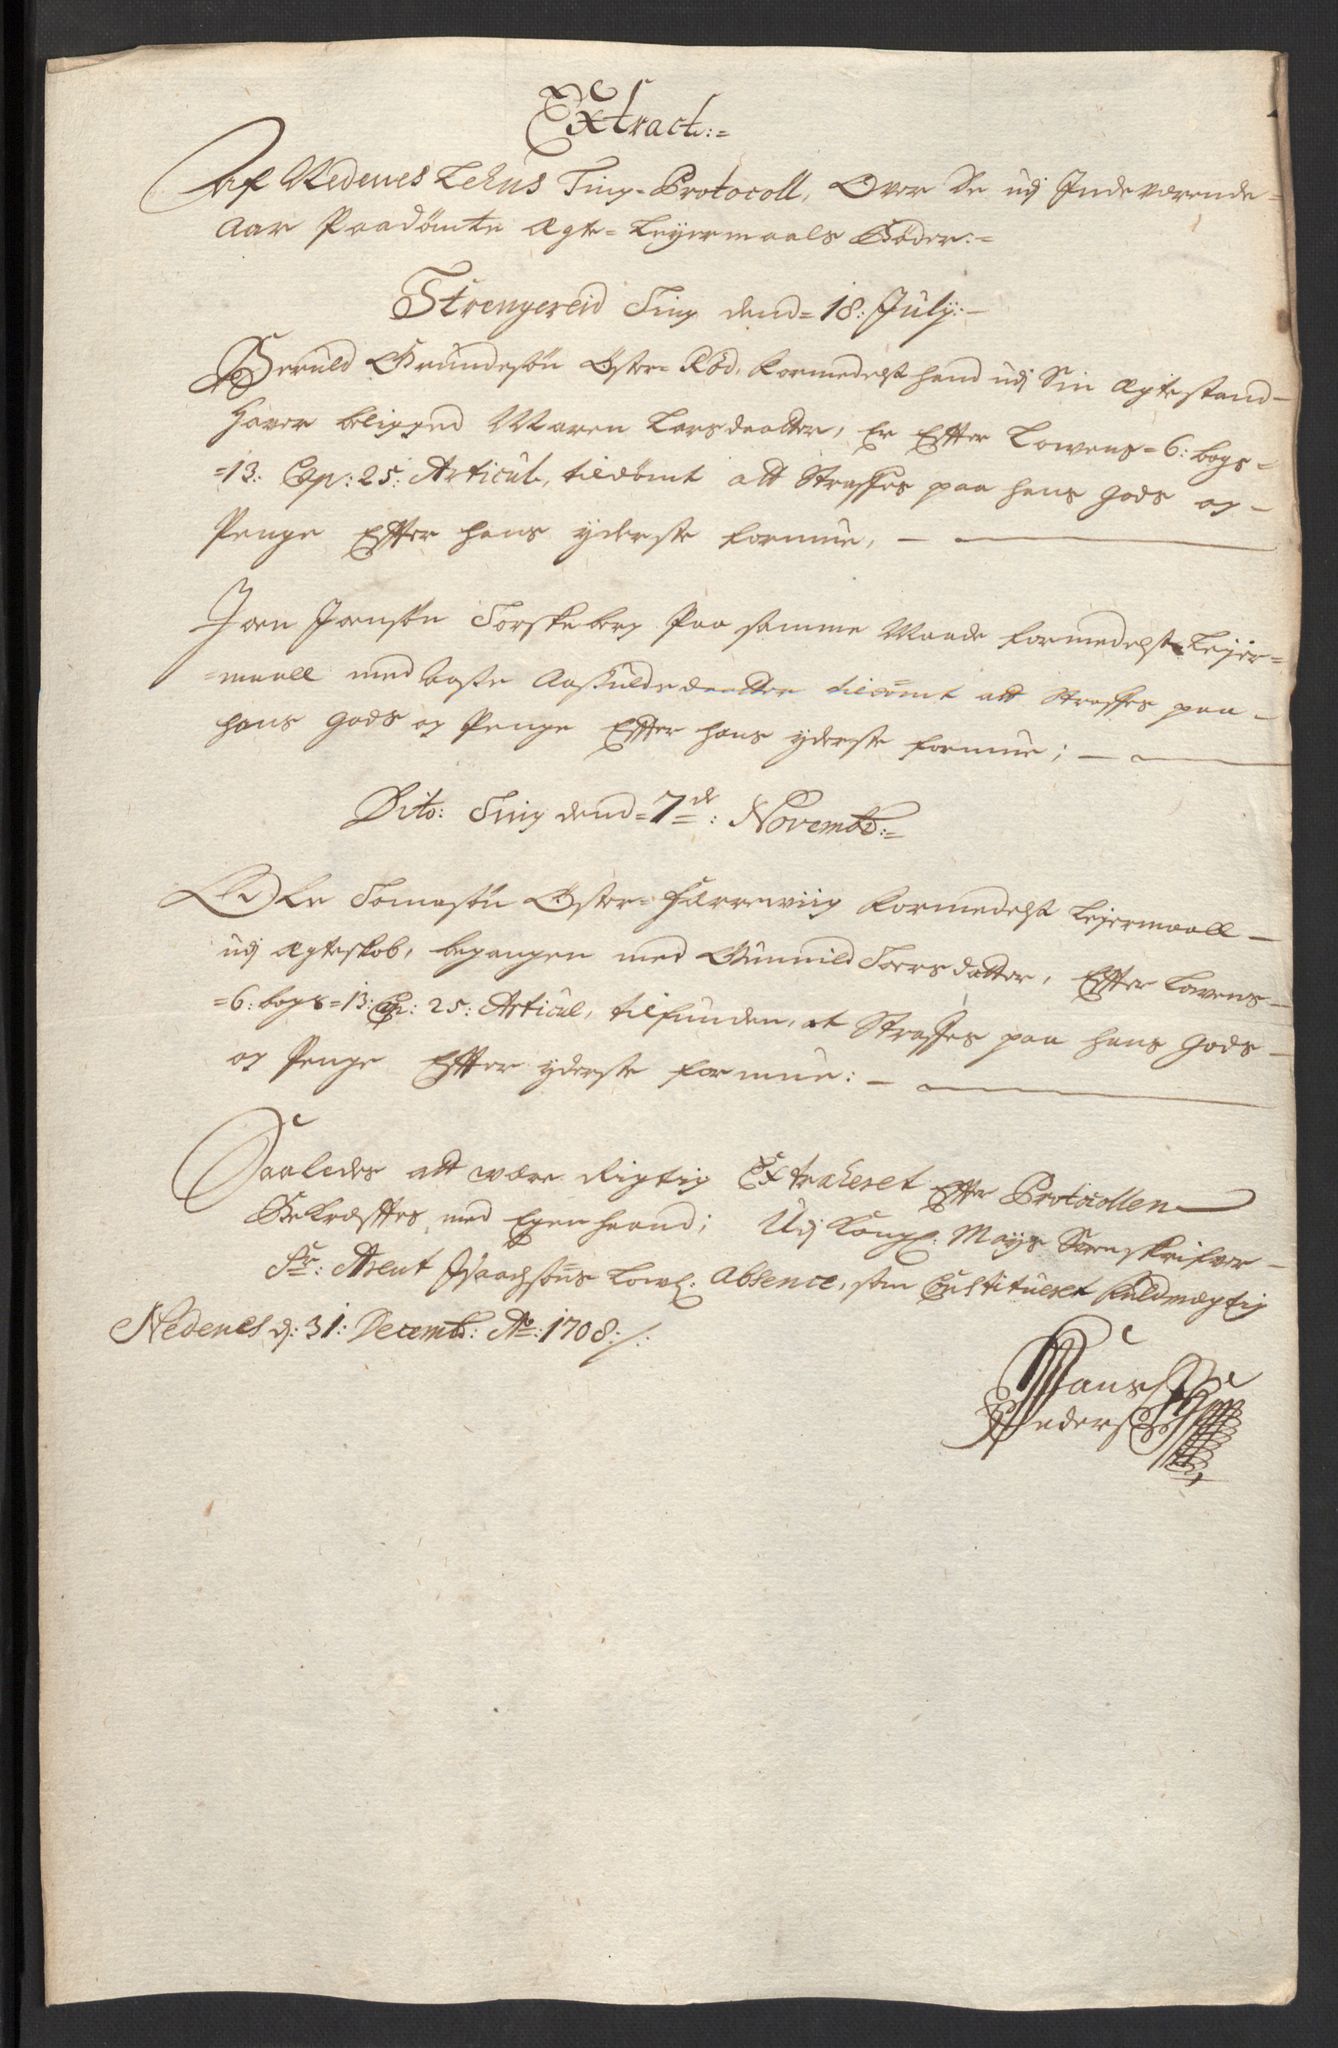 Extract:=
Af Nedenes Lehns Ting-Protocoll, Over De udj Indeværende=
Aar Paadömte Ægte=Leyermaals Böder:=
Strengereid Ting dend=18: July:-
Beruld Grundesön Öster=Röd, formedelst hand udj Sin Ægtestand-
hafver beligged Maren Larsdaatter, Er Effter Lowens=6: bogs=
=13: Cap: 25: Articul, tildömt att Straffes paa hans Gods og-
Penge Effter hans yderste formue, -
Joen Joensön Torskeberg Paa samme Maade formedelst Lejer=
=maall med Aaste Aaskuldsdaatter tildömt att Straffes paa-
hans Gods og Penge Effter hans yderste formue; -
Dito: Ting dend=7de: Novembr:=
Ole Tomasön Öster=Hærrewiig formedelst Lejermaall-
udj Ægteskab, begangen med Gunnild Toersdatter, Effter Lavens-
=6: bogs=13: Cap: 25: Articul, tilfunden, at Straffes paa hans Gods-
og Penge Effter yderste formue: -
Saaledes att være Rigtig Extraheret Effter Protocollen
Bekræfftes med Egen haand; Udj Kongl: Mayts Sorenskrifver-
Sr: Arent Isaachsöns Lowl: Absence, som Constitueret fuldmægtig
Nedenes d: 31: Decembr: Ao: 1708:/:
Hans
Peders